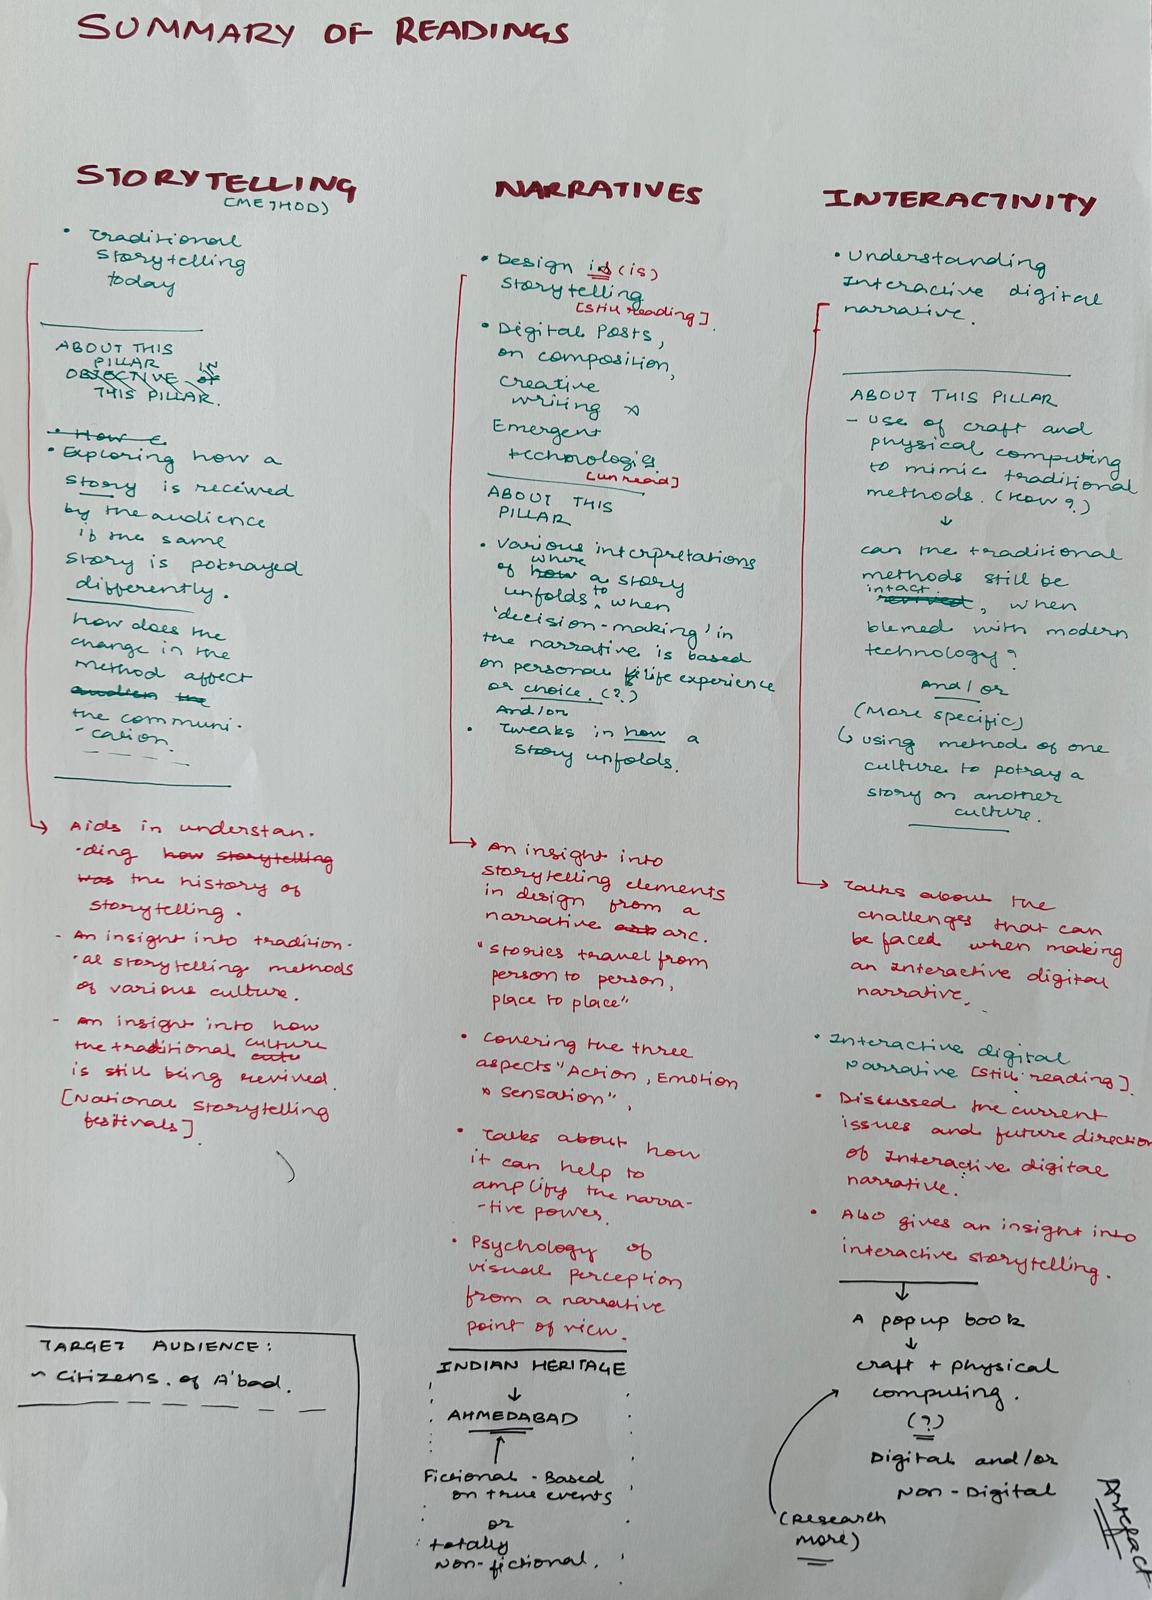 SUMMARY OF READINGS
STORYTELLING
(METHOD)
• Traditional
storytelling
today
ABOUT THIS
PILLAR
OBJECTIVE OF IN
THIS PILLAR.
• How
• Exploring how a
story is received
by the audience
if the same
story is potrayed
differently.
how does the
change in the
method affect
the
the communi-
-cation.
Aids in understan-
-ding how storytelling
was the history of
storytelling.
- An insight into tradition-
-al storytelling methods
of various culture.
- An insight into how
the traditional culture
is still being revived.
[National storytelling
festivals]
TARGET AUDIENCE:
~ Citizens. of A'bad.
NARRATIVES
• Design is (is)
storytelling
[still reading].
• Digital Posts,
on composition,
creative
writing &
Emergent
technologies
[unread]
ABOUT THIS
PILLAR
• Various interpretations
where
of how a story
unfolds to when
'decision-making' in
the narrative is based
on personal life experience
or choice. (?)
And/or
• Tweaks in how a
story unfolds.
An insight into
storytelling elements
in design from a
narrative arc.
"stories travel from
person to person,
place to place"
• Covering the three
aspects "Action, Emotion
& sensation",
• Talks about how
it can help to
amplify the narra-
-tive power.
• Psychology of
visual perception
from a narrative
point of view.
INDIAN HERITAGE
↓
AHMEDABAD
↑
Fictional - Based
on true events
or
totally
Non-fictional.
INTERACTIVITY
• Understanding
Interactive digital
narrative.
ABOUT THIS PILLAR
- Use of craft and
physical computing
to mimic traditional
methods. (How?)
↓
can the traditional
methods still be
intact
revived, when
blemed with modern
technology?
And/or
(More specific)
↳ using method of one
culture to potray a
story on another
culture.
Talks about the
challenges that can
be faced when making
an Interactive digital
narrative.
• Interactive digital
Narrative [still reading].
• Discussed the current
issues and future direction
of Interactive digital
narrative.
• Also gives an insight into
interactive storytelling.
↓
A popup book
↓
craft + physical
computing.
(?)
Digital and/or
Non-Digital
(Research
more)
Artefact